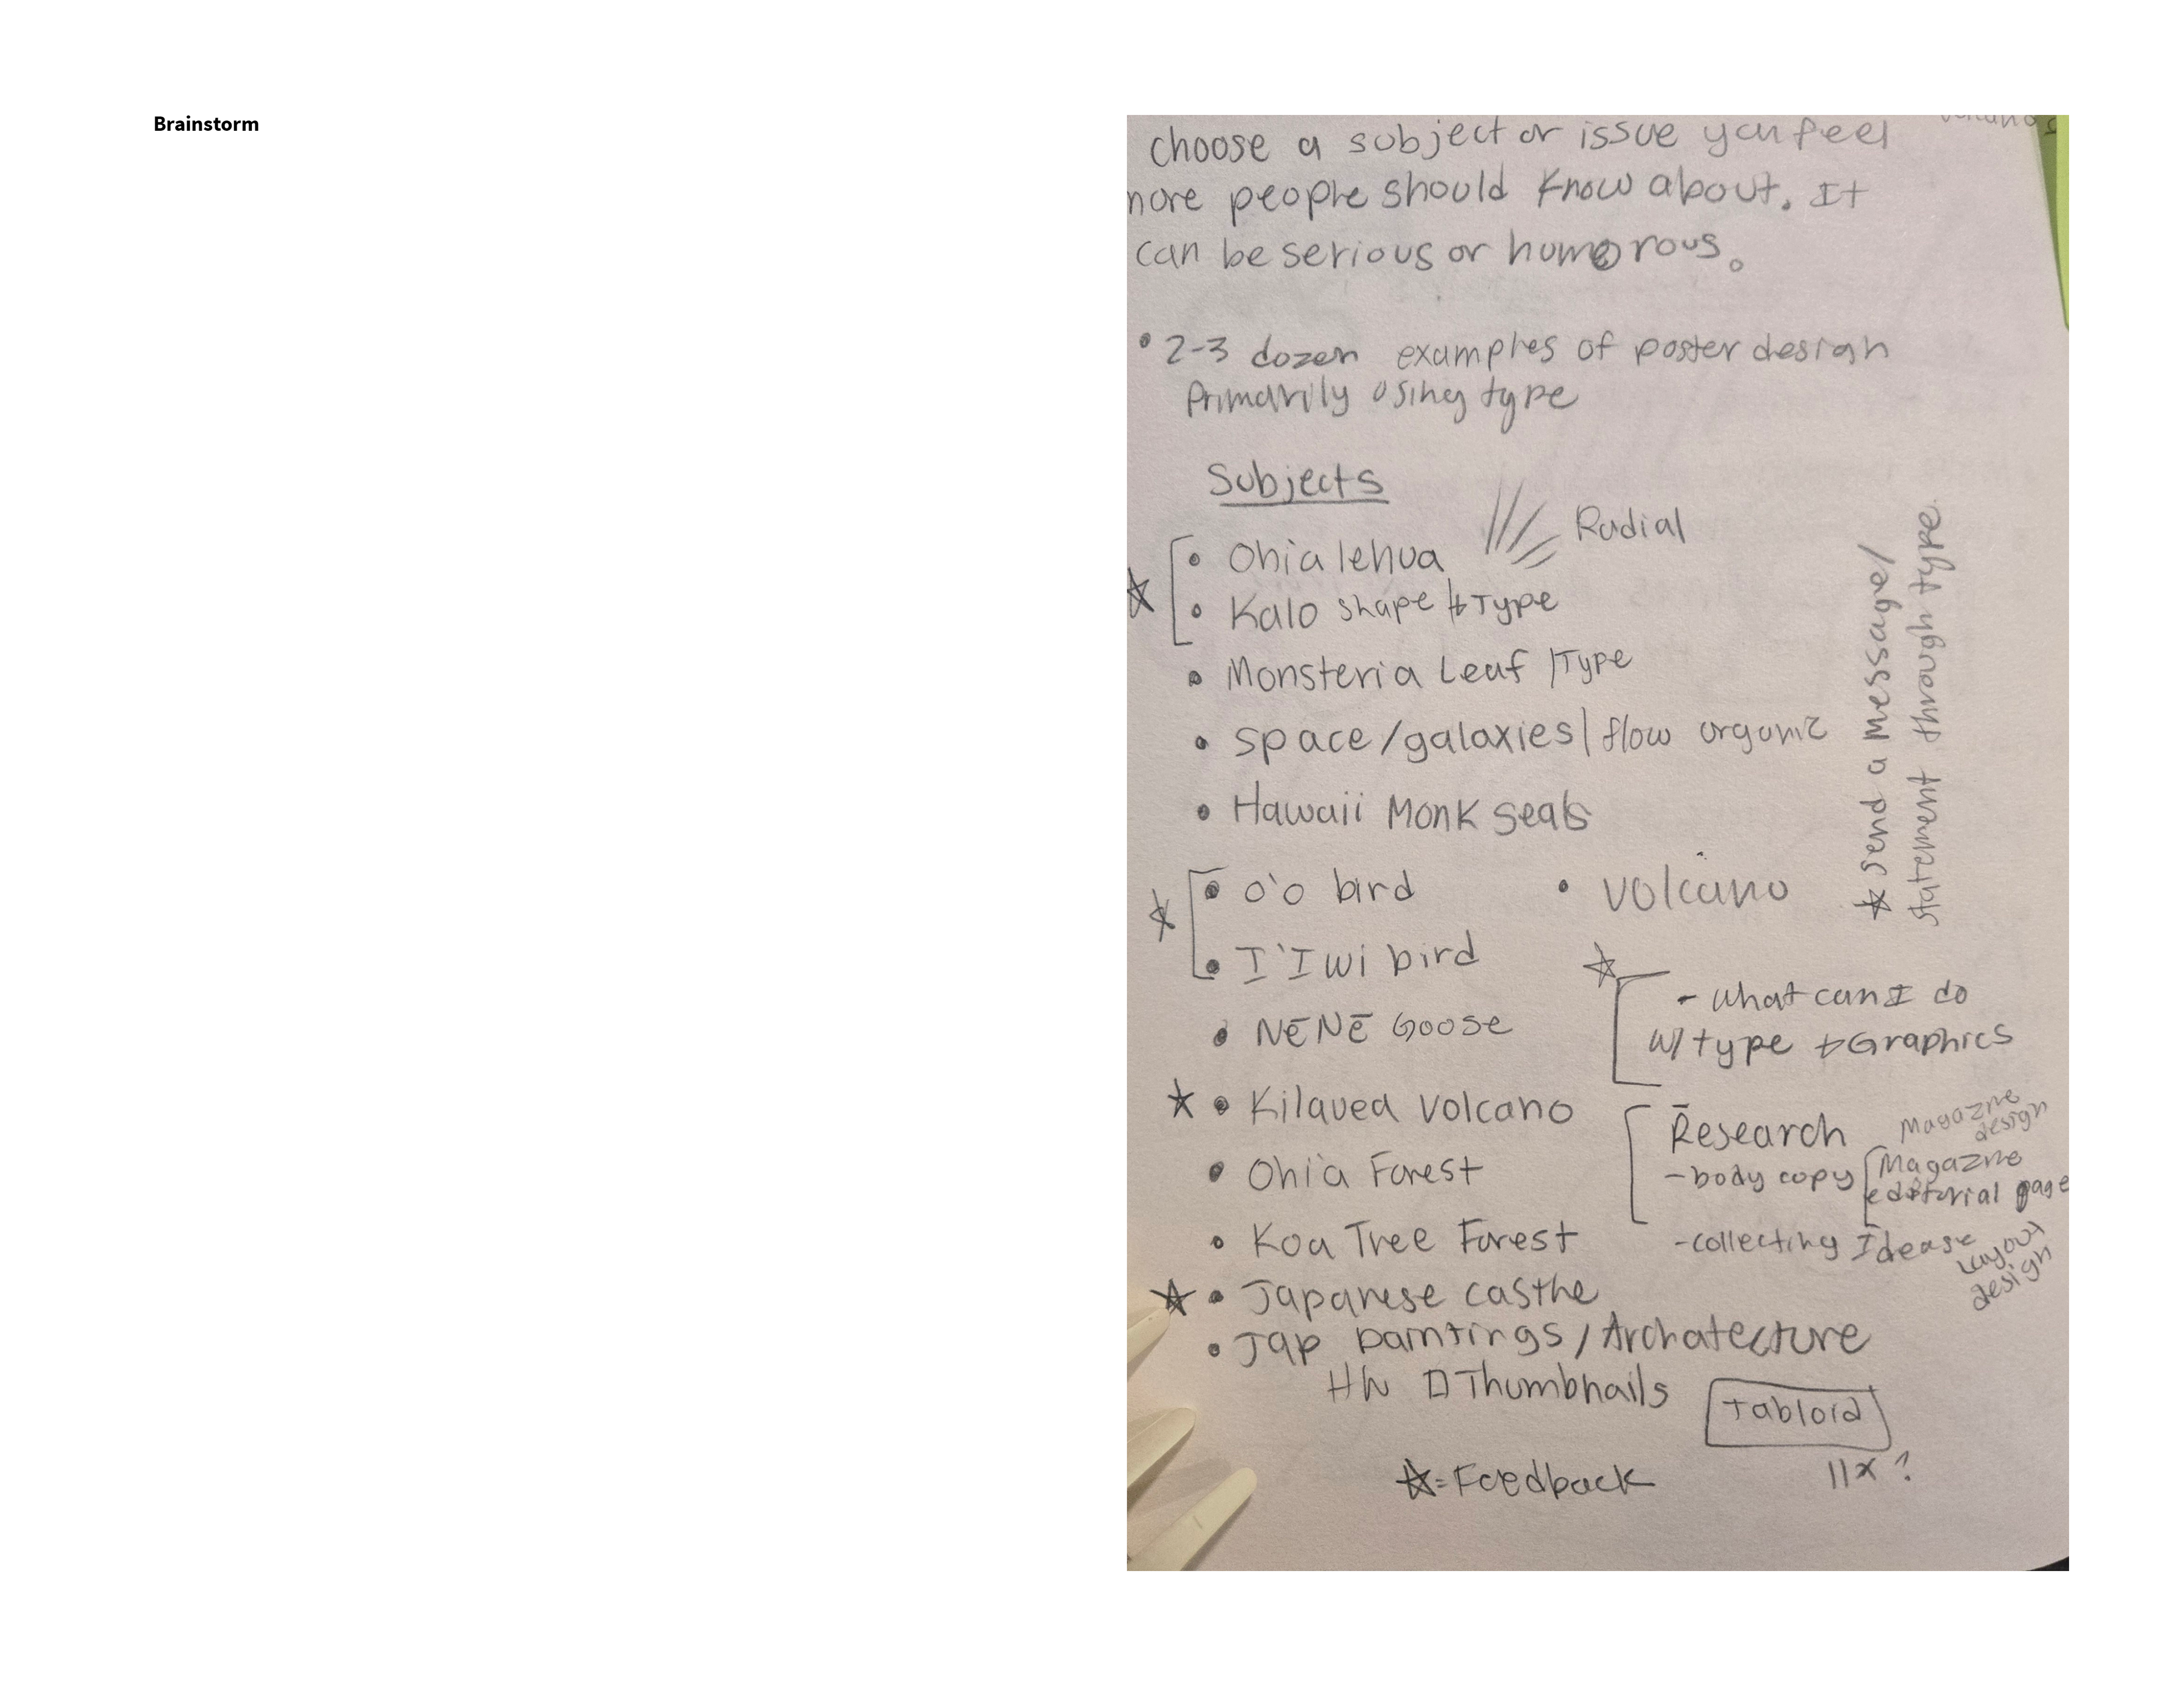 Brainstorm
choose a subject or issue you feel
more people should know about. It
can be serious or humorous.
• 2-3 dozen examples of poster design
Primarily using type
Subjects
Radial
• Ohia lehua
• Kalo shape + Type
• Monsteria Leaf / Type
• space/galaxies | flow organic
• Hawaii Monk seals
• o'o bird
• volcano
• I'Iwi bird
• NĒNĒ Goose
• Kilauea volcano
• Ohi'a Forest
• Koa Tree Forest
• Japanese castle
• Jap paintings / Archatecture
HW Thumbnails
☆ send a message/
statement through type.
- what can I do
w/ type + Graphics
Research
- body copy
- collecting Ideas
Magazine
design
Magazine
editorial page
Layout
design
Tabloid
11x ?
☆ = Feedback